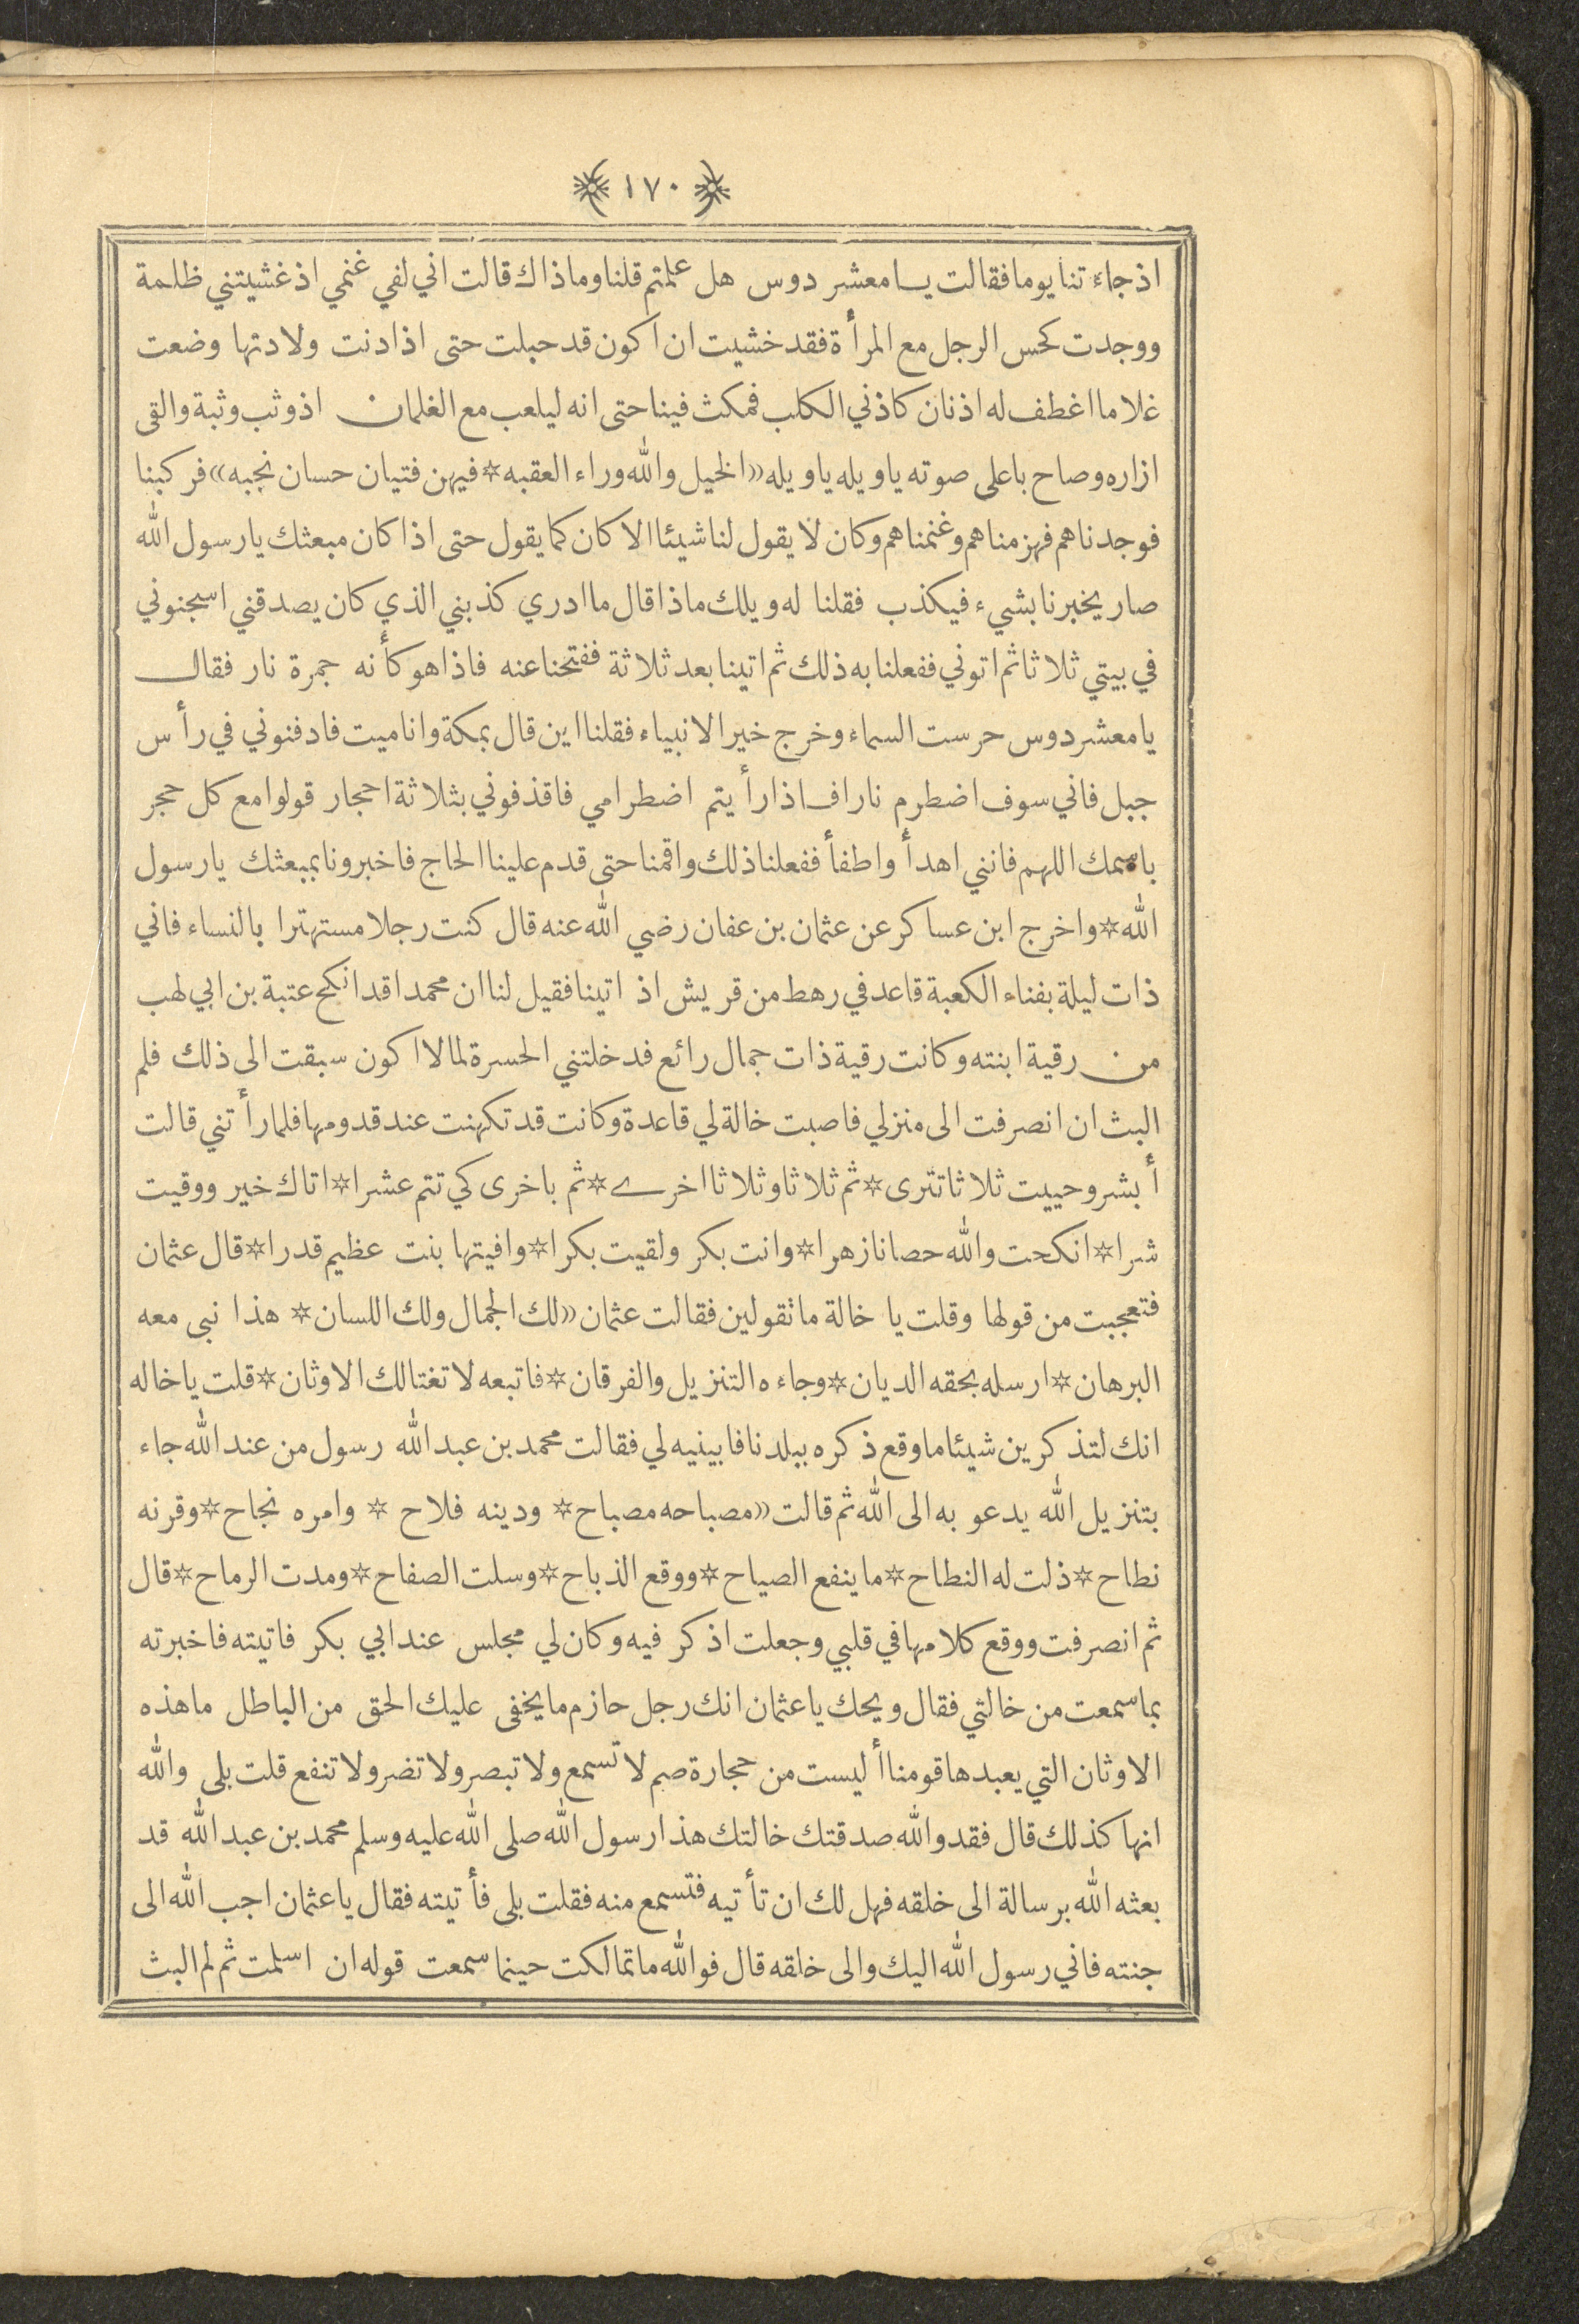 ١٧٠
اذ جاءتنا يوما فقالت يا معشر دوس هل علمتم قلنا وما ذاك قالت اني لفي غنمي اذ غشيتني ظلمة
ووجدت كحس الرجل مع المرأة فقد خشيت ان اكون قد حبلت حتى اذا دنت ولادتها وضعت
غلاما اغطف له اذنان كاذني الكلب فمكث فينا حتى انه ليلعب مع الغلمان اذ وثب وثبة والقى
ازاره وصاح باعلى صوته يا ويله يا ويله «الخيل والله وراء العقبه * فيهن فتيان حسان نجبه» فركبنا
فوجدناهم فهزمناهم وغنمناهم وكان لا يقول لنا شيئا الا كان كما يقول حتى اذا كان مبعثك يا رسول الله
صار يخبرنا بشيء فيكذب فقلنا له ويلك ماذا قال ما ادري كذبني الذي كان يصدقني اسجنوني
في بيتي ثلاثا ثم اتوني ففعلنا به ذلك ثم اتينا بعد ثلاثة ففتحنا عنه فاذا هو كأنه جمرة نار فقال
يا معشر دوس حرست السماء وخرج خير الانبياء فقلنا اين قال بمكة وانا ميت فادفنوني في رأس
جبل فاني سوف اضطرم نارا فاذا رأيتم اضطرامي فاقذفوني بثلاثة احجار قولوا مع كل حجر
باسمك اللهم فانني اهدأ واطفأ ففعلنا ذلك واقمنا حتى قدم علينا الحاج فاخبرونا بمبعثك يا رسول
الله * واخرج ابن عساكر عن عثمان بن عفان رضي الله عنه قال كنت رجلا مستهترا بالنساء فاني
ذات ليلة بفناء الكعبة قاعد في رهط من قريش اذ اتينا فقيل لنا ان محمدا قد انكح عتبة بن ابي لهب
من رقية ابنته وكانت رقية ذات جمال رائع فدخلتني الحسرة لما لا اكون سبقت الى ذلك فلم
البث ان انصرفت الى منزلي فاصبت خالة لي قاعدة وكانت قد تكهنت عند قدومها فلما رأتني قالت
أبشر وحييت ثلاثا تترى * ثم ثلاثا وثلاثا اخرى * ثم باخرى كي تتم عشرا * اتاك خير ووقيت
شرا * انكحت والله حصانا زهرا * وانت بكر ولقيت بكرا * وافيتها بنت عظيم قدرا * قال عثمان
فتعجبت من قولها وقلت يا خالة ما تقولين فقالت عثمان «لك الجمال ولك اللسان * هذا نبي معه
البرهان * ارسله بحقه الديان * وجاءه التنزيل والفرقان * فاتبعه لا تغتالك الاوثان * قلت يا خاله
انك لتذكرين شيئا ما وقع ذكره ببلدنا فابينيه لي فقالت محمد بن عبد الله رسول من عند الله جاء
بتنزيل الله يدعو به الى الله ثم قالت «مصباحه مصباح * ودينه فلاح * وامره نجاح * وقرنه
نطاح * ذلت له النطاح * ما ينفع الصياح * ووقع الذباح * وسلت الصفاح * ومدت الرماح * قال
ثم انصرفت ووقع كلامها في قلبي وجعلت اذكر فيه وكان لي مجلس عند ابي بكر فاتيته فاخبرته
بما سمعت من خالتي فقال ويحك يا عثمان انك رجل حازم ما يخفى عليك الحق من الباطل ما هذه
الاوثان التي يعبدها قومنا أليست من حجارة صم لا تسمع ولا تبصر ولا تضر ولا تنفع قلت بلى والله
انها كذلك قال فقد والله صدقتك خالتك هذا رسول الله صلى الله عليه وسلم محمد بن عبد الله قد
بعثه الله برسالة الى خلقه فهل لك ان تأتيه فتسمع منه فقلت بلى فأتيته فقال يا عثمان اجب الله الى
جنته فاني رسول الله اليك والى خلقه قال فوالله ما تمالكت حينما سمعت قوله ان اسلمت ثم لم البث